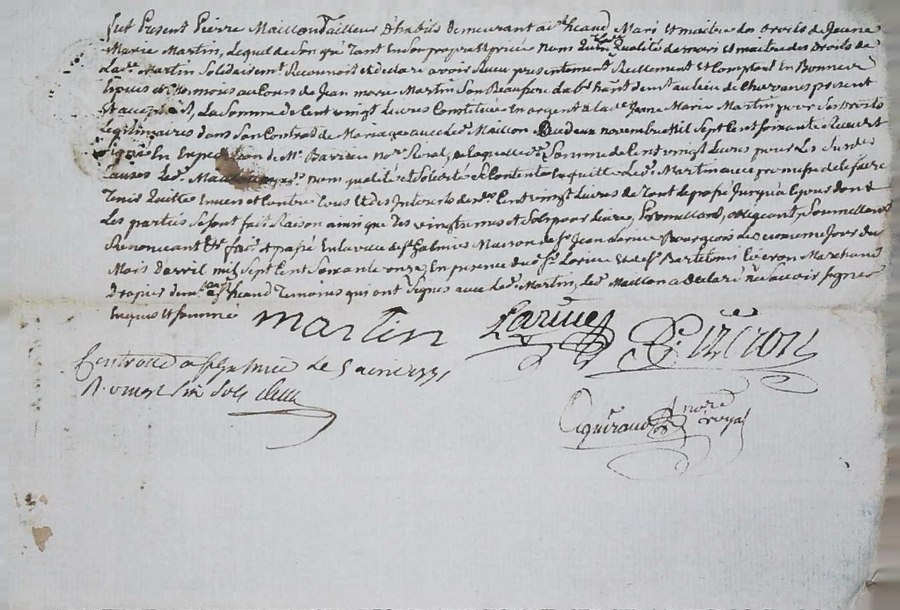 fut Present Pierre Maillon Tailleur D'habits Demeurant a st heand Mari et maitre des droits de Jeanne
Marie Martin, Lequel de Son gré tant En son propre et privé Nom qu'en qualité de mari et maitre des Droits de
La de Martin Solidairemt Reconnoit et declare avoir Reçu presentement Reellement et Comptant En Bonnes
Espèces et Monnous au Cours de Jean marie Martin Son Beaufrere habitant du lieu de present
et acceptant, La Somme de Cent vingt Livres Constituée en argent a lade Jeane Marie Martin pour Ses droits
Legitimaires dans Son Contrat de Mariage avec led. Maillon du deux novembre Mil Sept Cent Soixante Reçu et
Signé En Expedition Me Barrieu nore Roial, de laquelle de Somme de Cent vingt Livres pour Les Susdes
Causes Led. Maillon nom qualité et Solidaire Se Contente Et quitte Led. Martin avec promesse de le faire
Tenir Quitte Envers et Contre tous et des Interets desd. Cent vingt Livres de tout le passé Jusqu'a Ce jour dont
Les parties Se Sont fait Raison ainsi que des vingtiemes et Sols pour Livre, Promettant, obligeant, Soumettant
Renonceant &c fait et passé En la ville de st Galmier Maison de Sr Jean Larive Bourgeois le cinquieme Jour du
Mois d'avril Mil Sept Cent Soixante onze, En presence dud. Sr Larive et de Sr Bartelemi Marchand
Drapier demt a st heand Temoins qui ont Signés avec Led. Martin, Led. Maillon a declaré ne Savoir Signer
Enquis et Sommé
martin Larive
Controllé a st Galmier le 5 avril 1771
R. vingt Six Sols
nore
royal